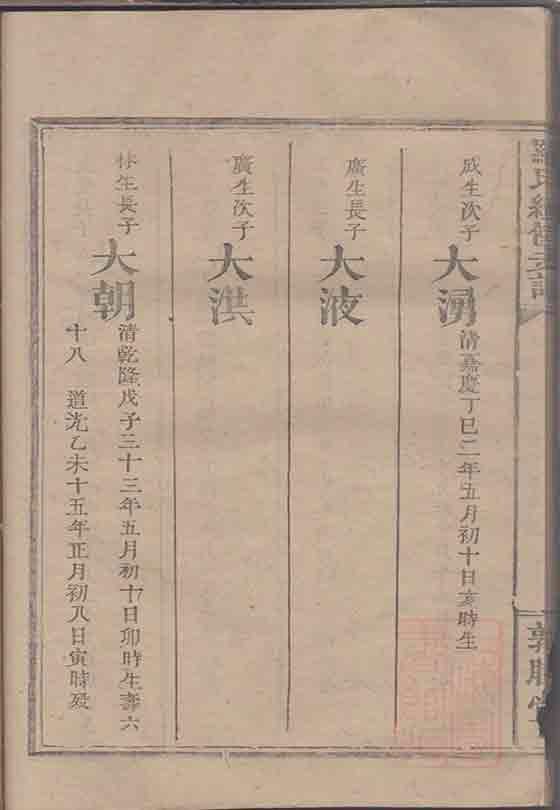 成生次子
大湧
清嘉慶丁巳二年五月初十日亥時生
廣生長子
大液
廣生次子
大洪
林生長子
大朝
清乾隆戊子三十三年五月初十日卯時生壽六
十八 道光乙未十五年正月初八日寅時歿